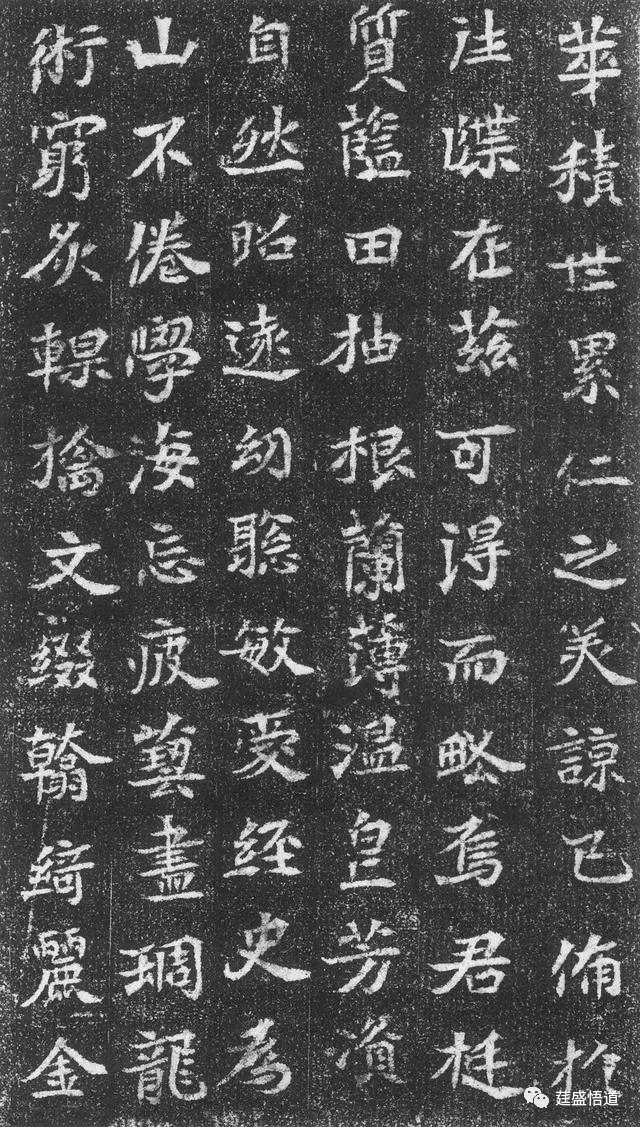 華積世累仁之美諒已備於
往牒在茲可得而略焉君挺
質藍田抽根蘭薄溫芳資
自然昭遠幼聡敏愛經史為
山不倦學海忘疲藝盡琱龍
術窮炙輠摛文綴翰綺麗金
莛盛悟道